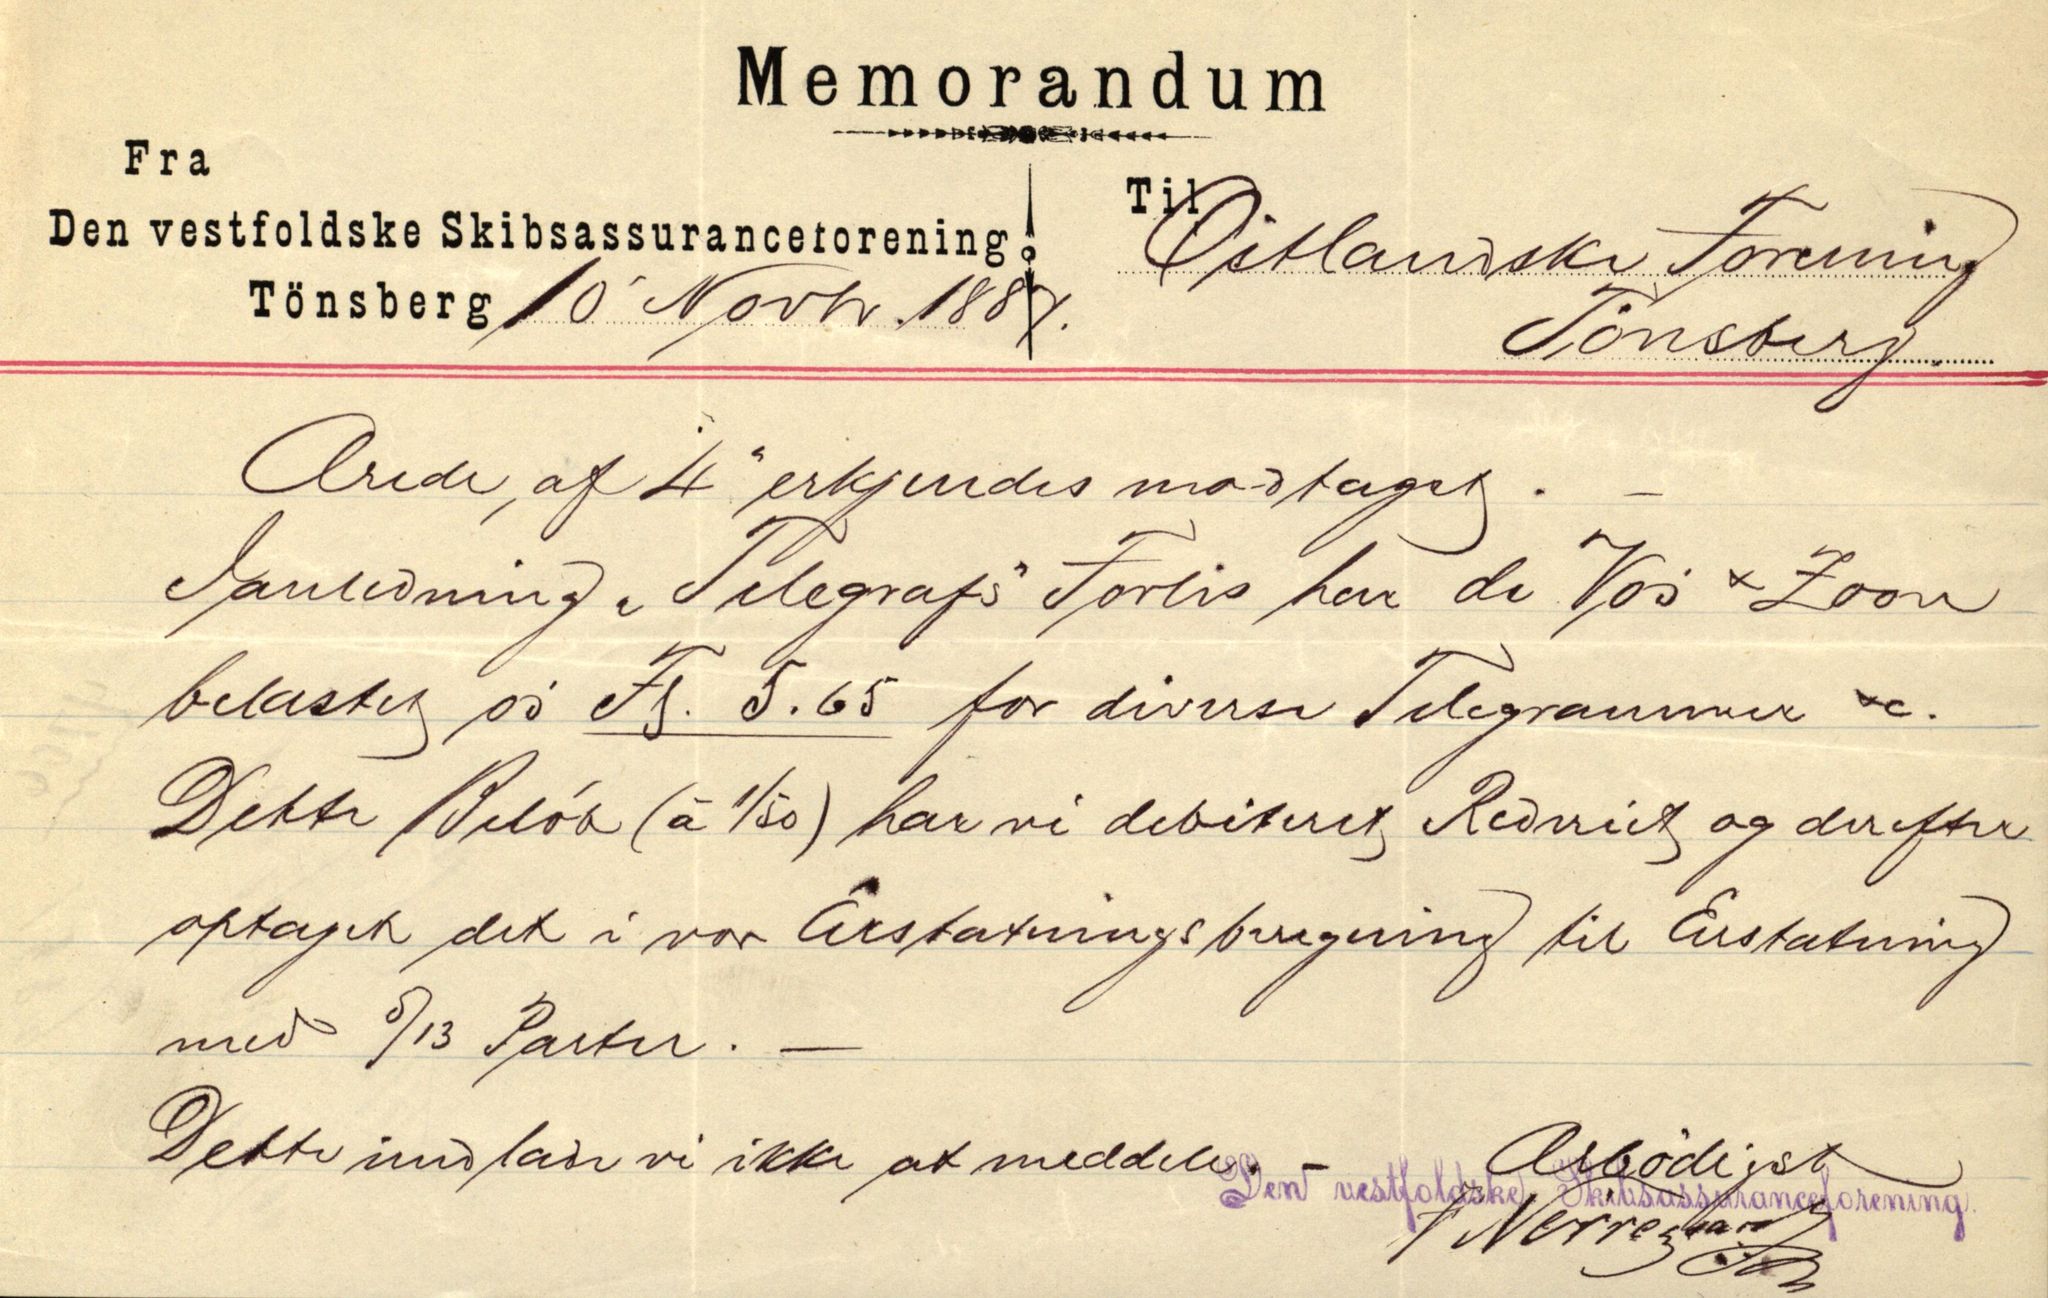 Memorandum
Fra
Den vestfoldske Skibsassuranceforening
Tönsberg 10 Novbr. 1887.
Til Östlandske Forening
Tönsberg.
Ærede, af 4" erkjendes modtaget. —
I anledning „Telegrafs" Forlis har de Vos & Zoon
belastet os Fl. 5.65 for diverse Telegrammer &c.
Dette Beløb (à 1/50) har vi debiteret Rederiet og derefter
optaget det i vor Erstatningsberegning til Erstatning
med 5/13 Parter. —
Dette undlade vi ikke at meddele. —
Ærbödigst
Den vestfoldske Skibsassuranceforening.